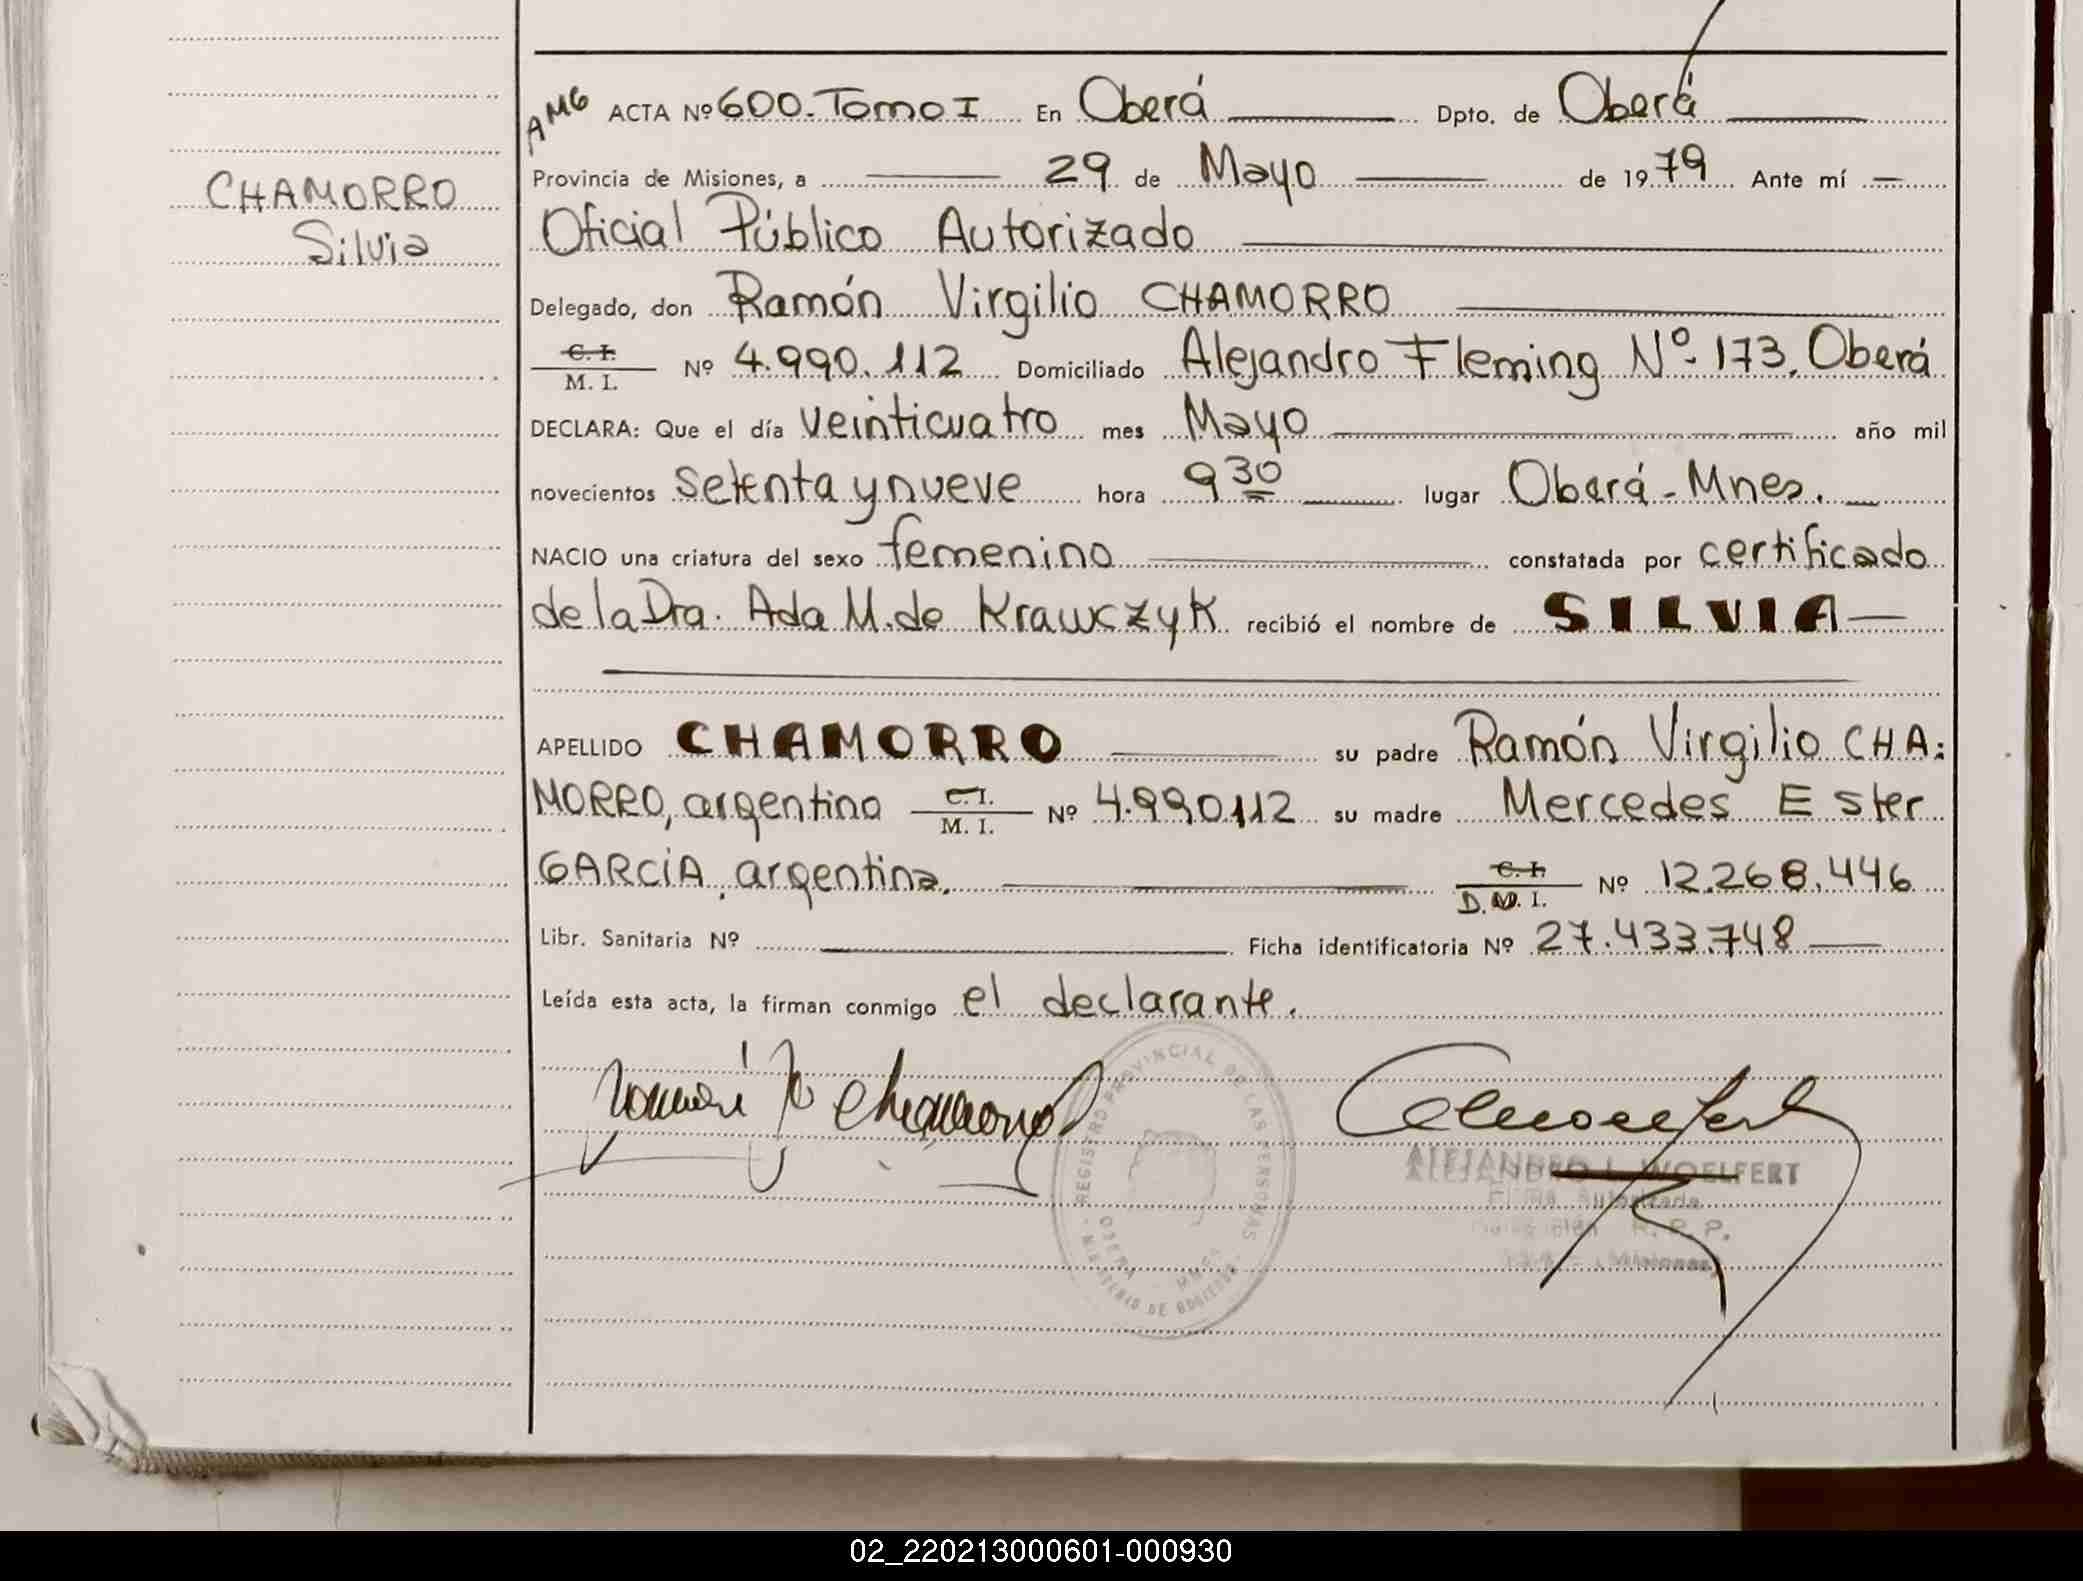 CHAMORRO
Silvia
AMG ACTA Nº 600. Tomo I En Oberá Dpto. de Oberá
Provincia de Misiones, a 29 de Mayo de 1979 Ante mí
Oficial Público Autorizado
Delegado, don Ramón Virgilio CHAMORRO
C. I.
M. I. Nº 4.990.112 Domiciliado Alejandro Fleming Nº 173. Oberá
DECLARA: Que el día veinticuatro mes Mayo año mil
novecientos setenta y nueve hora 9 30 lugar Oberá - Mnes.
NACIO una criatura del sexo femenino constatada por certificado
de la Dra. Ada M. de Krawczyk recibió el nombre de SILVIA
APELLIDO CHAMORRO su padre Ramón Virgilio CHA:
MORRO, argentino C. I. M. I. Nº 4.990.112 su madre Mercedes Ester
GARCÍA, argentina. C. I. D. M. I. Nº 12.268.446
Libr. Sanitaria Nº Ficha identificatoria Nº 27.433.748
Leída esta acta, la firman conmigo el declarante.
REGISTRO PROVINCIAL DE LAS PERSONAS
OBERA MNES
MINISTERIO DE GOBIERNO
ALEJANDRO L. WOELFERT
Firma Autorizada
R. P. P.
(Misiones)
02_220213000601-000930